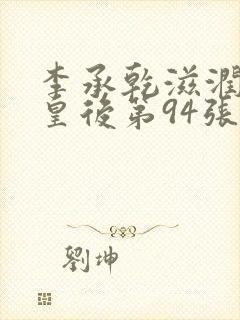 李承乾滋潤
皇後第94張
劉坤